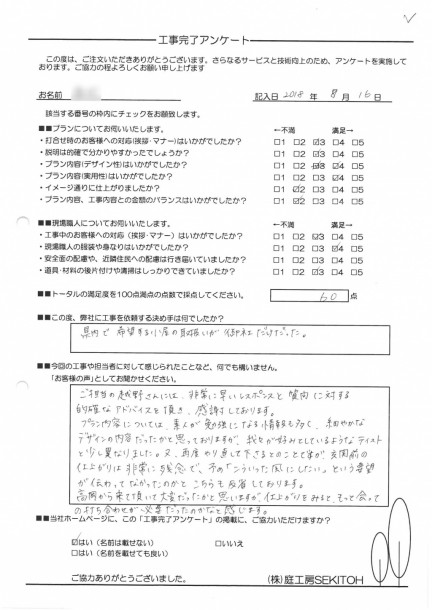 工事完了アンケート
この度は、ご注文いただきありがとうございます。さらなるサービスと技術向上のため、アンケートを実施して
おります。ご協力の程よろしくお願い申し上げます
お名前
記入日 2018 年 8 月 16 日
該当する番号の枠内にチェックをお願い致します。
■■プランについてお伺いいたします。 ←不満 満足→
・打合せ時のお客様への対応(挨拶・マナー)はいかがでしたか? □1 □2 ☑3 □4 □5
・説明は的確で分かりやすかったでしょうか? □1 □2 ☑3 □4 □5
・プラン内容(デザイン性)はいかがでしたか? □1 □2 ☑3 □4 □5
・プラン内容(実用性)はいかがでしたか? □1 ☑2 □3 □4 □5
・イメージ通りに仕上がりましたか? □1 ☑2 □3 □4 □5
・プラン内容、工事内容との金額のバランスはいかがでしたか? □1 ☑2 □3 □4 □5
■■現場職人についてお伺いいたします。 ←不満 満足→
・工事中のお客様への対応(挨拶・マナー)はいかがでしたか? □1 □2 ☑3 □4 □5
・現場職人の服装や身なりはいかがでしたか? □1 □2 ☑3 □4 □5
・安全面の配慮や、近隣住民への配慮は行き届いていましたか? □1 □2 ☑3 □4 □5
・道具・材料の後片付けや清掃はしっかりできていましたか? □1 □2 ☑3 □4 □5
■■トータルの満足度を100点満点の点数で採点してください。 60 点
■■この度、弊社に工事を依頼する決め手は何でしたか?
県内で希望する小屋の取扱いが御社だけだった。
■■今回の工事や担当者に対して感じられたことなど、何でも構いません。
「お客様の声」としてお聞かせください。
ご担当の越野さんには、非常に早いレスポンスと質問に対する
的確なアドバイスを頂き、感謝しております。
プラン内容については、素人が勉強になる情報も多く、細やかな
デザインの内容だったかと思っておりますが、我々が好みとしているようなテイスト
と少し異なりました。又、再度やり直して下さるとのことですが、玄関前の
仕上がりは非常に残念で、その「こういった風にしたい」という要望
が伝わってなかったのかとこちらも反省しております。
高岡から来て頂いて大変だったかと思いますが、仕上がりをみると、もっと会って
の打ち合わせが必要だったのかなと感じます。
■■当社ホームページに、この「工事完了アンケート」の掲載に、ご協力いただけますか?
☑はい(名前は載せない) □いいえ
□はい(名前を載せても良い)
ご協力ありがとうございました。
(株)庭工房SEKITOH